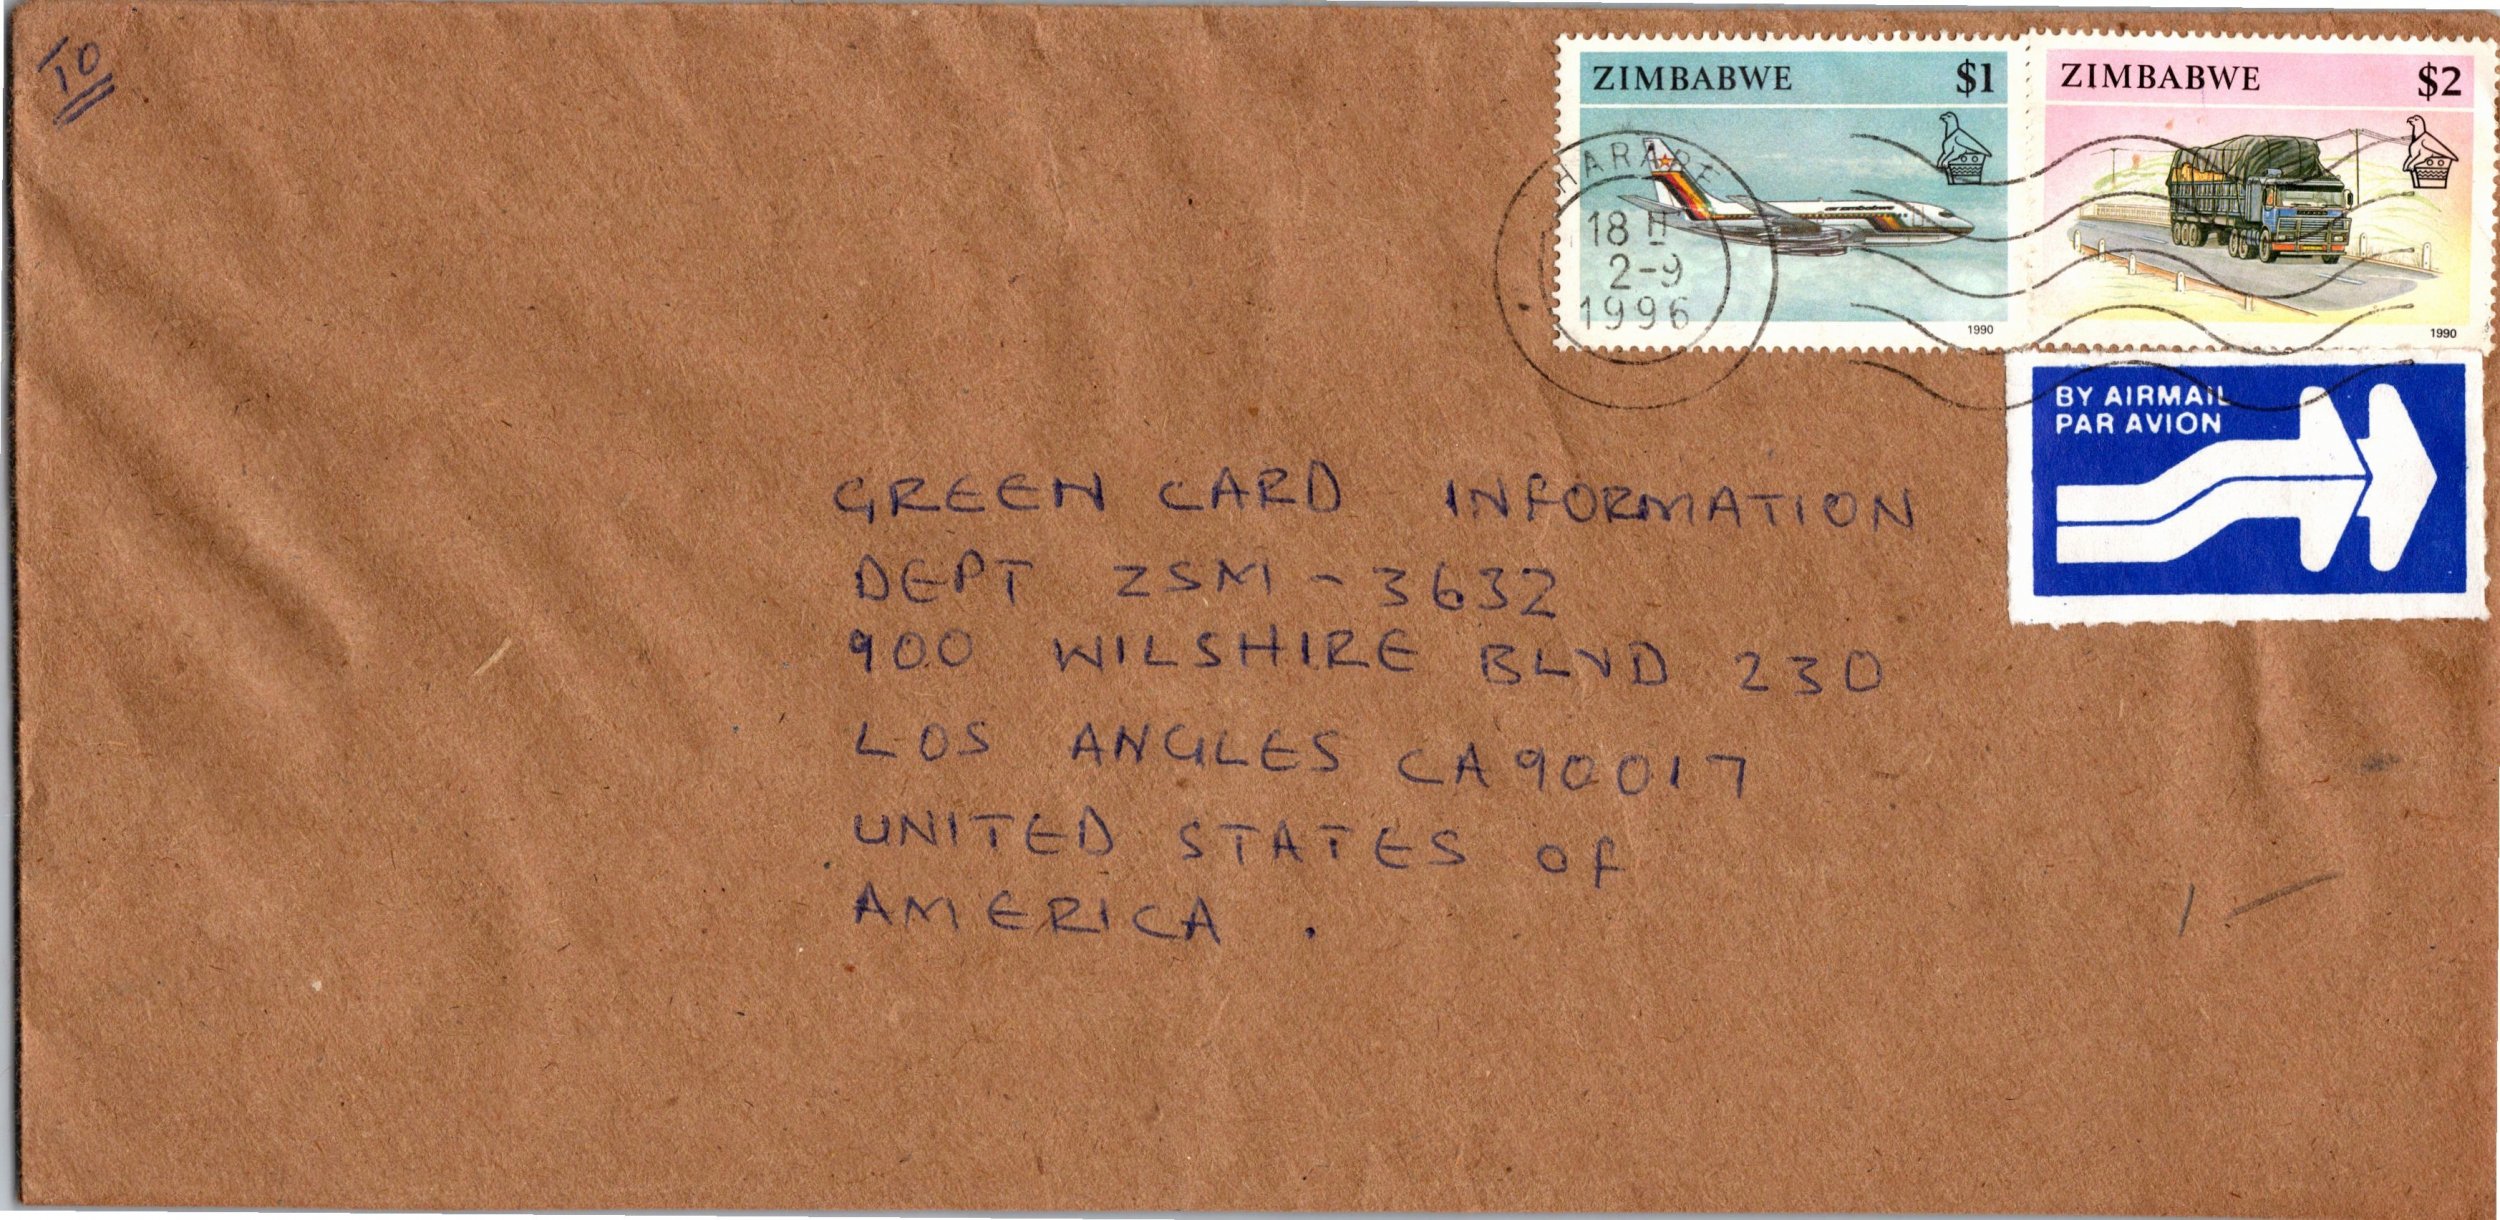 TO
ZIMBABWE $1
air zimbabwe
1990
ZIMBABWE $2
1990
HARARE
18 H
2-9
1996
BY AIRMAIL
PAR AVION
GREEN CARD INFORMATION
DEPT ZSM - 3632
900 WILSHIRE BLVD 230
LOS ANGLES CA 90017
UNITED STATES OF
AMERICA .